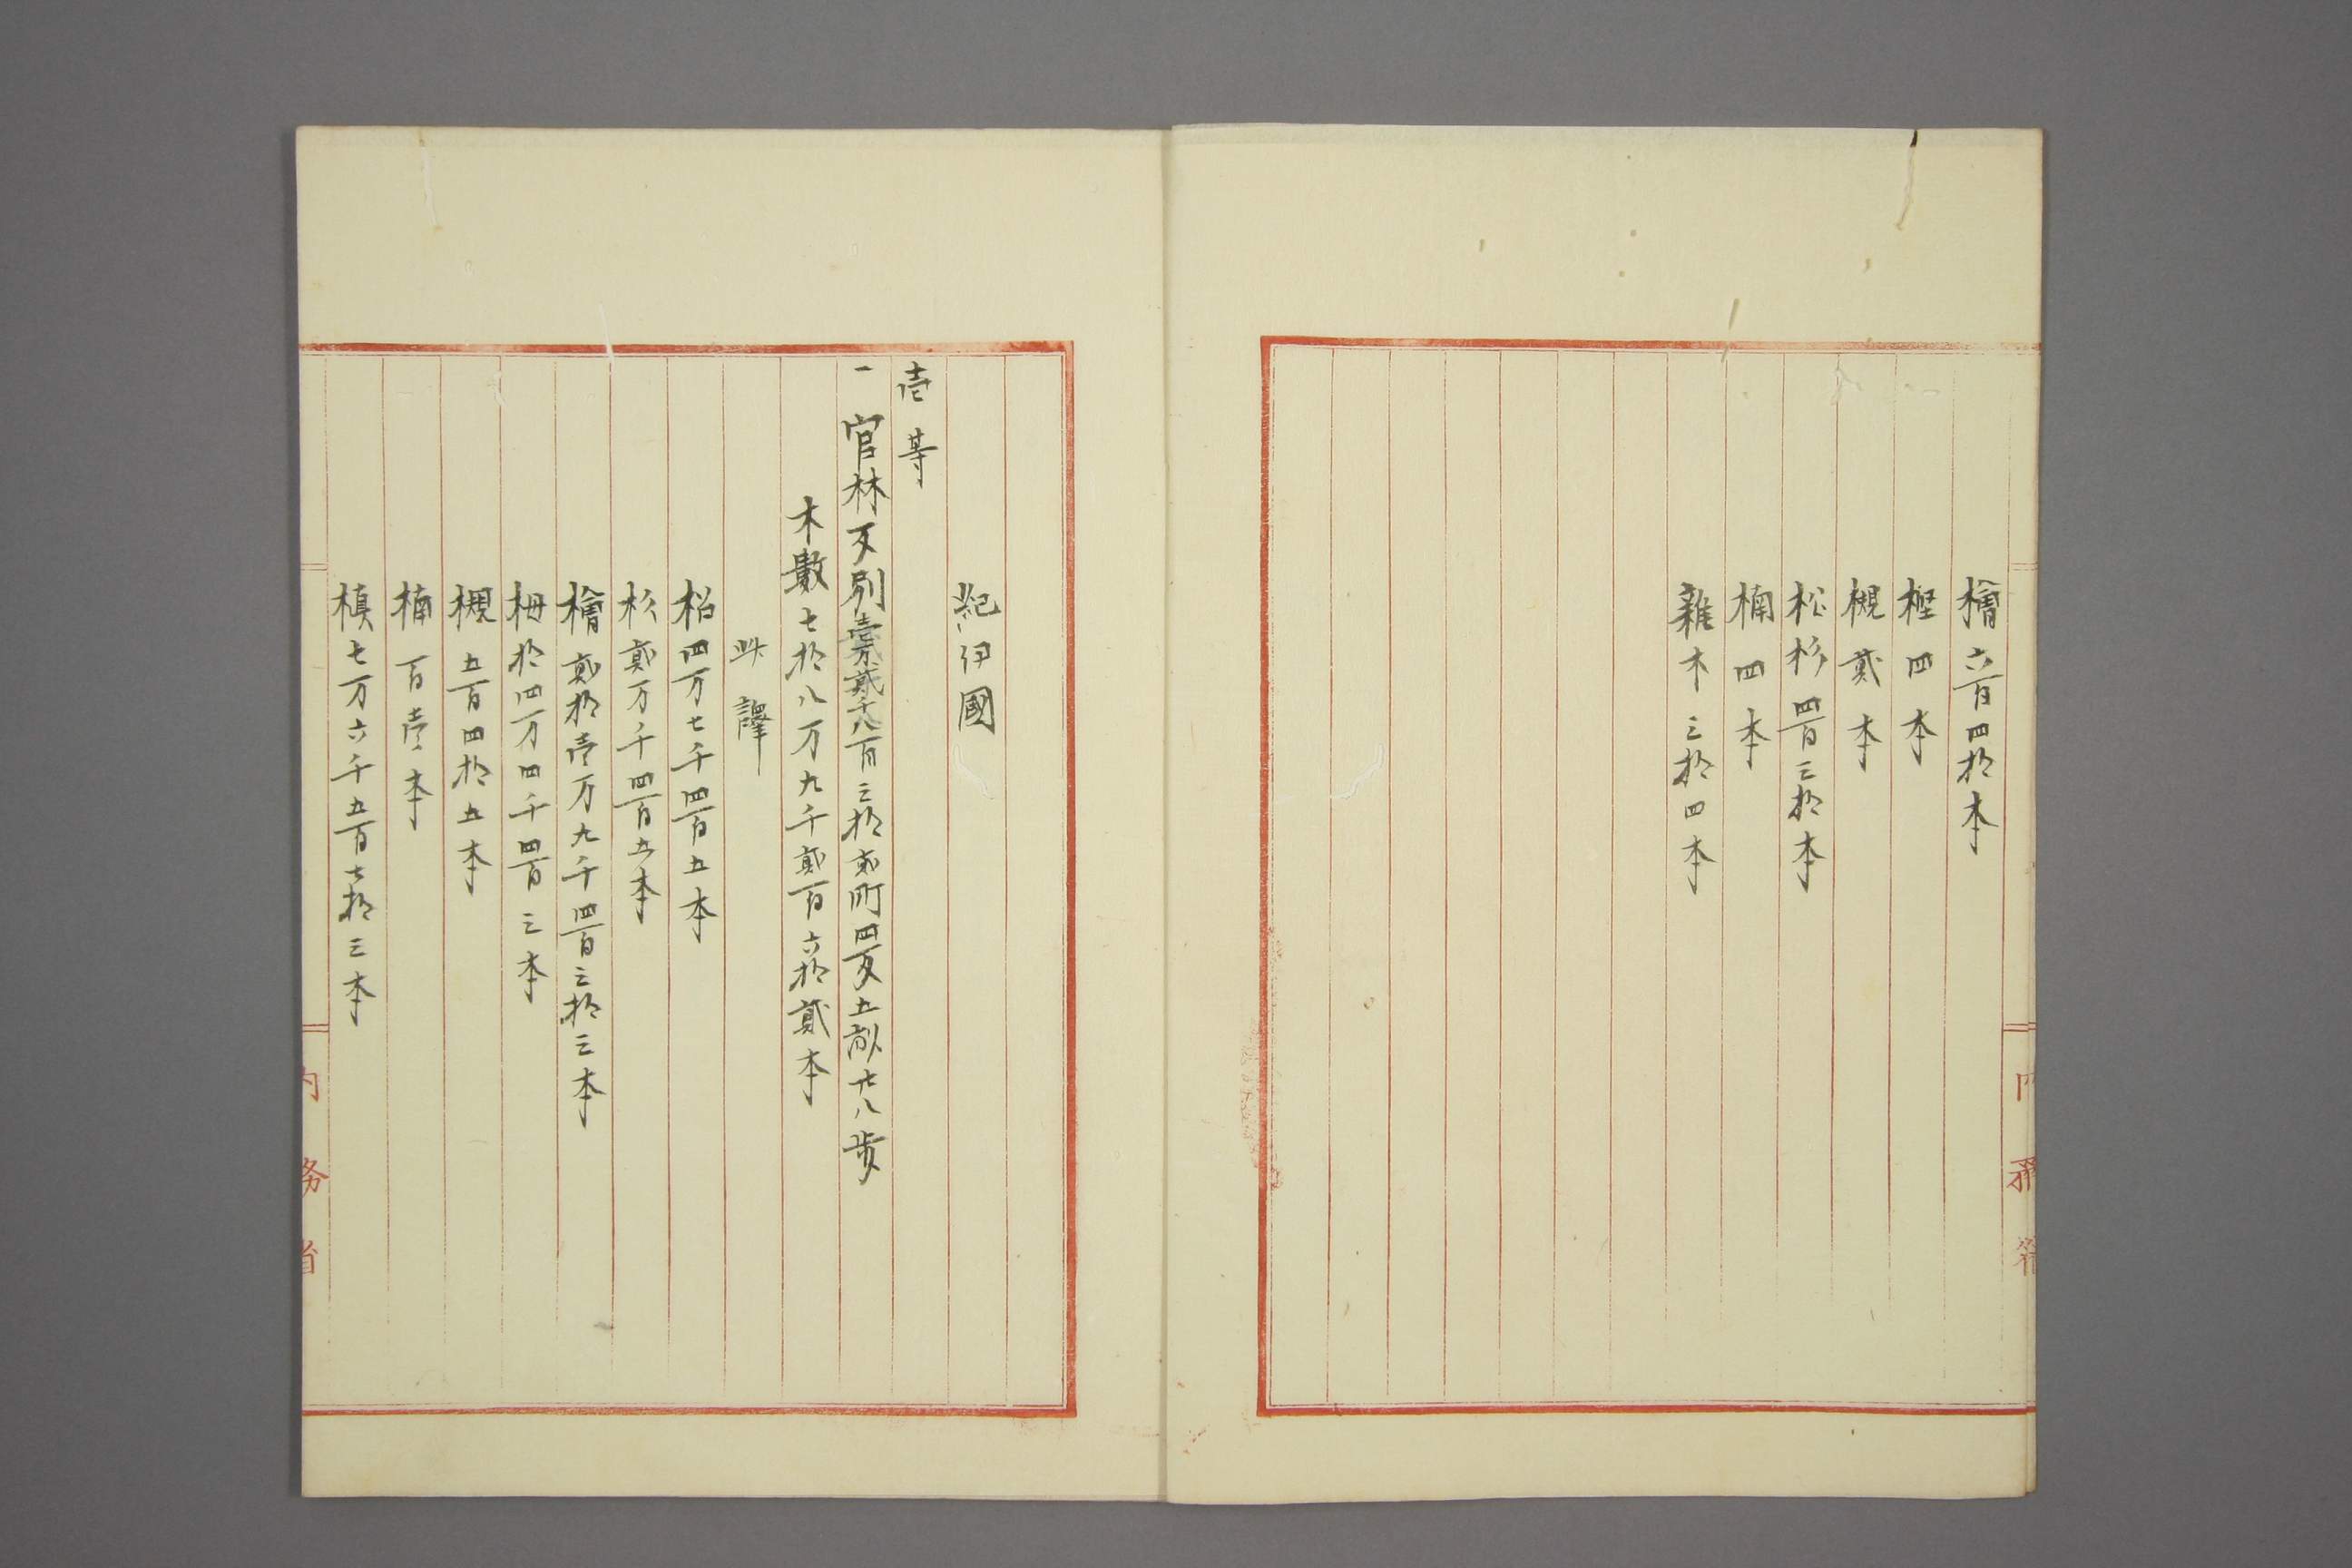 檜六百四拾本
樫四本
槻貳本
松杉四百三拾本
楠四本
雜木三拾四本
紀伊國
壱等
一官林反別壹万貳千八百三拾貳町四反五畝廿八歩
木數七拾八万九千貳百六拾貳本
此譯
松四万七千四百五本
杉貳万千四百五本
檜貳拾壱万九千四百三拾三本
栂拾四万四千四百三本
槻五百四拾五本
楠百壱本
槙七万六千五百七拾三本
内務省
内務省